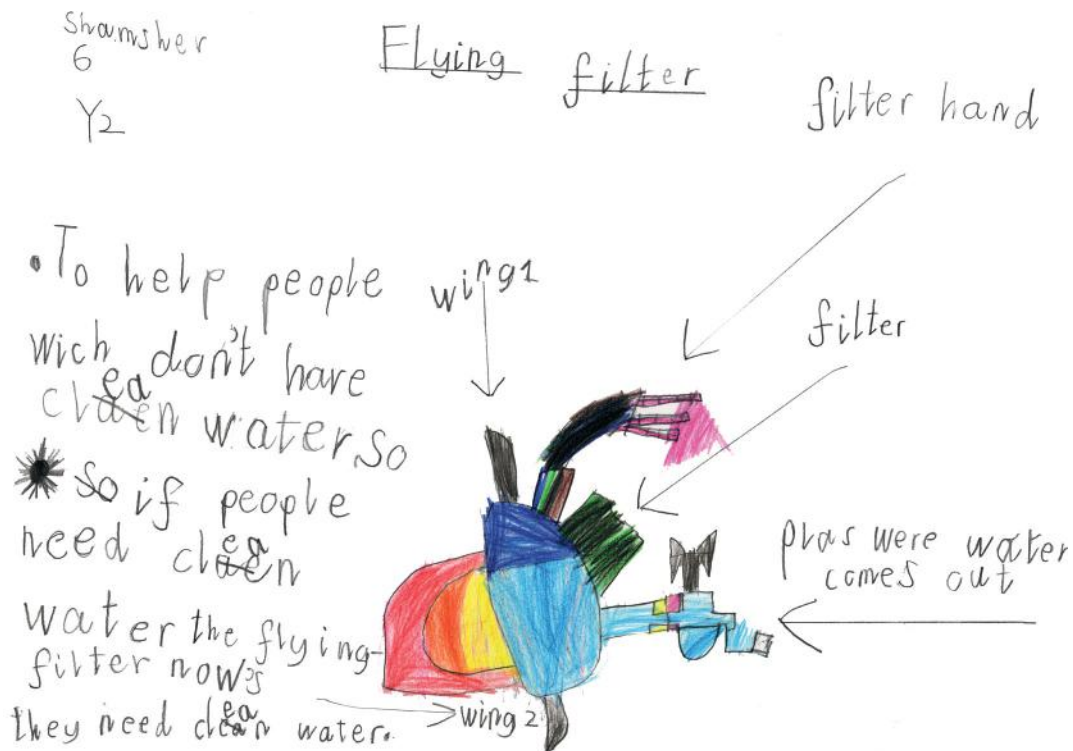 Shamsher
6
Y2
Flying filter
filter hand
filter
wing1
.To help people
wich don't have
clean water so
so if people
need clean
water the flying
filter now's
they need clean water.
wing 2
plas were water
comes out